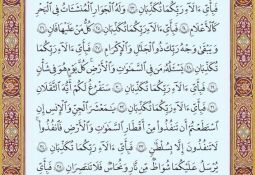 فَبِأَيِّ ءَالَآءِ رَبِّكُمَا تُكَذِّبَانِ ﴿٢٣﴾ وَلَهُ ٱلْجَوَارِ ٱلْمُنشَـَٔاتُ فِى ٱلْبَحْرِ
كَٱلْأَعْلَٰمِ ﴿٢٤﴾ فَبِأَيِّ ءَالَآءِ رَبِّكُمَا تُكَذِّبَانِ ﴿٢٥﴾ كُلُّ مَنْ عَلَيْهَا فَانٍ ﴿٢٦﴾
وَيَبْقَىٰ وَجْهُ رَبِّكَ ذُو ٱلْجَلَٰلِ وَٱلْإِكْرَامِ ﴿٢٧﴾ فَبِأَيِّ ءَالَآءِ رَبِّكُمَا
تُكَذِّبَانِ ﴿٢٨﴾ يَسْـَٔلُهُۥ مَن فِى ٱلسَّمَٰوَٰتِ وَٱلْأَرْضِ كُلَّ يَوْمٍ هُوَ فِى شَأْنٍ ﴿٢٩﴾
فَبِأَيِّ ءَالَآءِ رَبِّكُمَا تُكَذِّبَانِ ﴿٣٠﴾ سَنَفْرُغُ لَكُمْ أَيُّهَ ٱلثَّقَلَانِ ﴿٣١﴾
فَبِأَيِّ ءَالَآءِ رَبِّكُمَا تُكَذِّبَانِ ﴿٣٢﴾ يَٰمَعْشَرَ ٱلْجِنِّ وَٱلْإِنسِ إِنِ
ٱسْتَطَعْتُمْ أَن تَنفُذُوا۟ مِنْ أَقْطَارِ ٱلسَّمَٰوَٰتِ وَٱلْأَرْضِ فَٱنفُذُوا۟
لَا تَنفُذُونَ إِلَّا بِسُلْطَٰنٍ ﴿٣٣﴾ فَبِأَيِّ ءَالَآءِ رَبِّكُمَا تُكَذِّبَانِ ﴿٣٤﴾
يُرْسَلُ عَلَيْكُمَا شُوَاظٌ مِّن نَّارٍ وَنُحَاسٌ فَلَا تَنتَصِرَانِ ﴿٣٥﴾